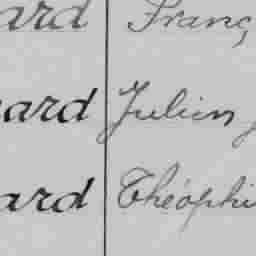 ard Franç
ard Julien
ard Théophi